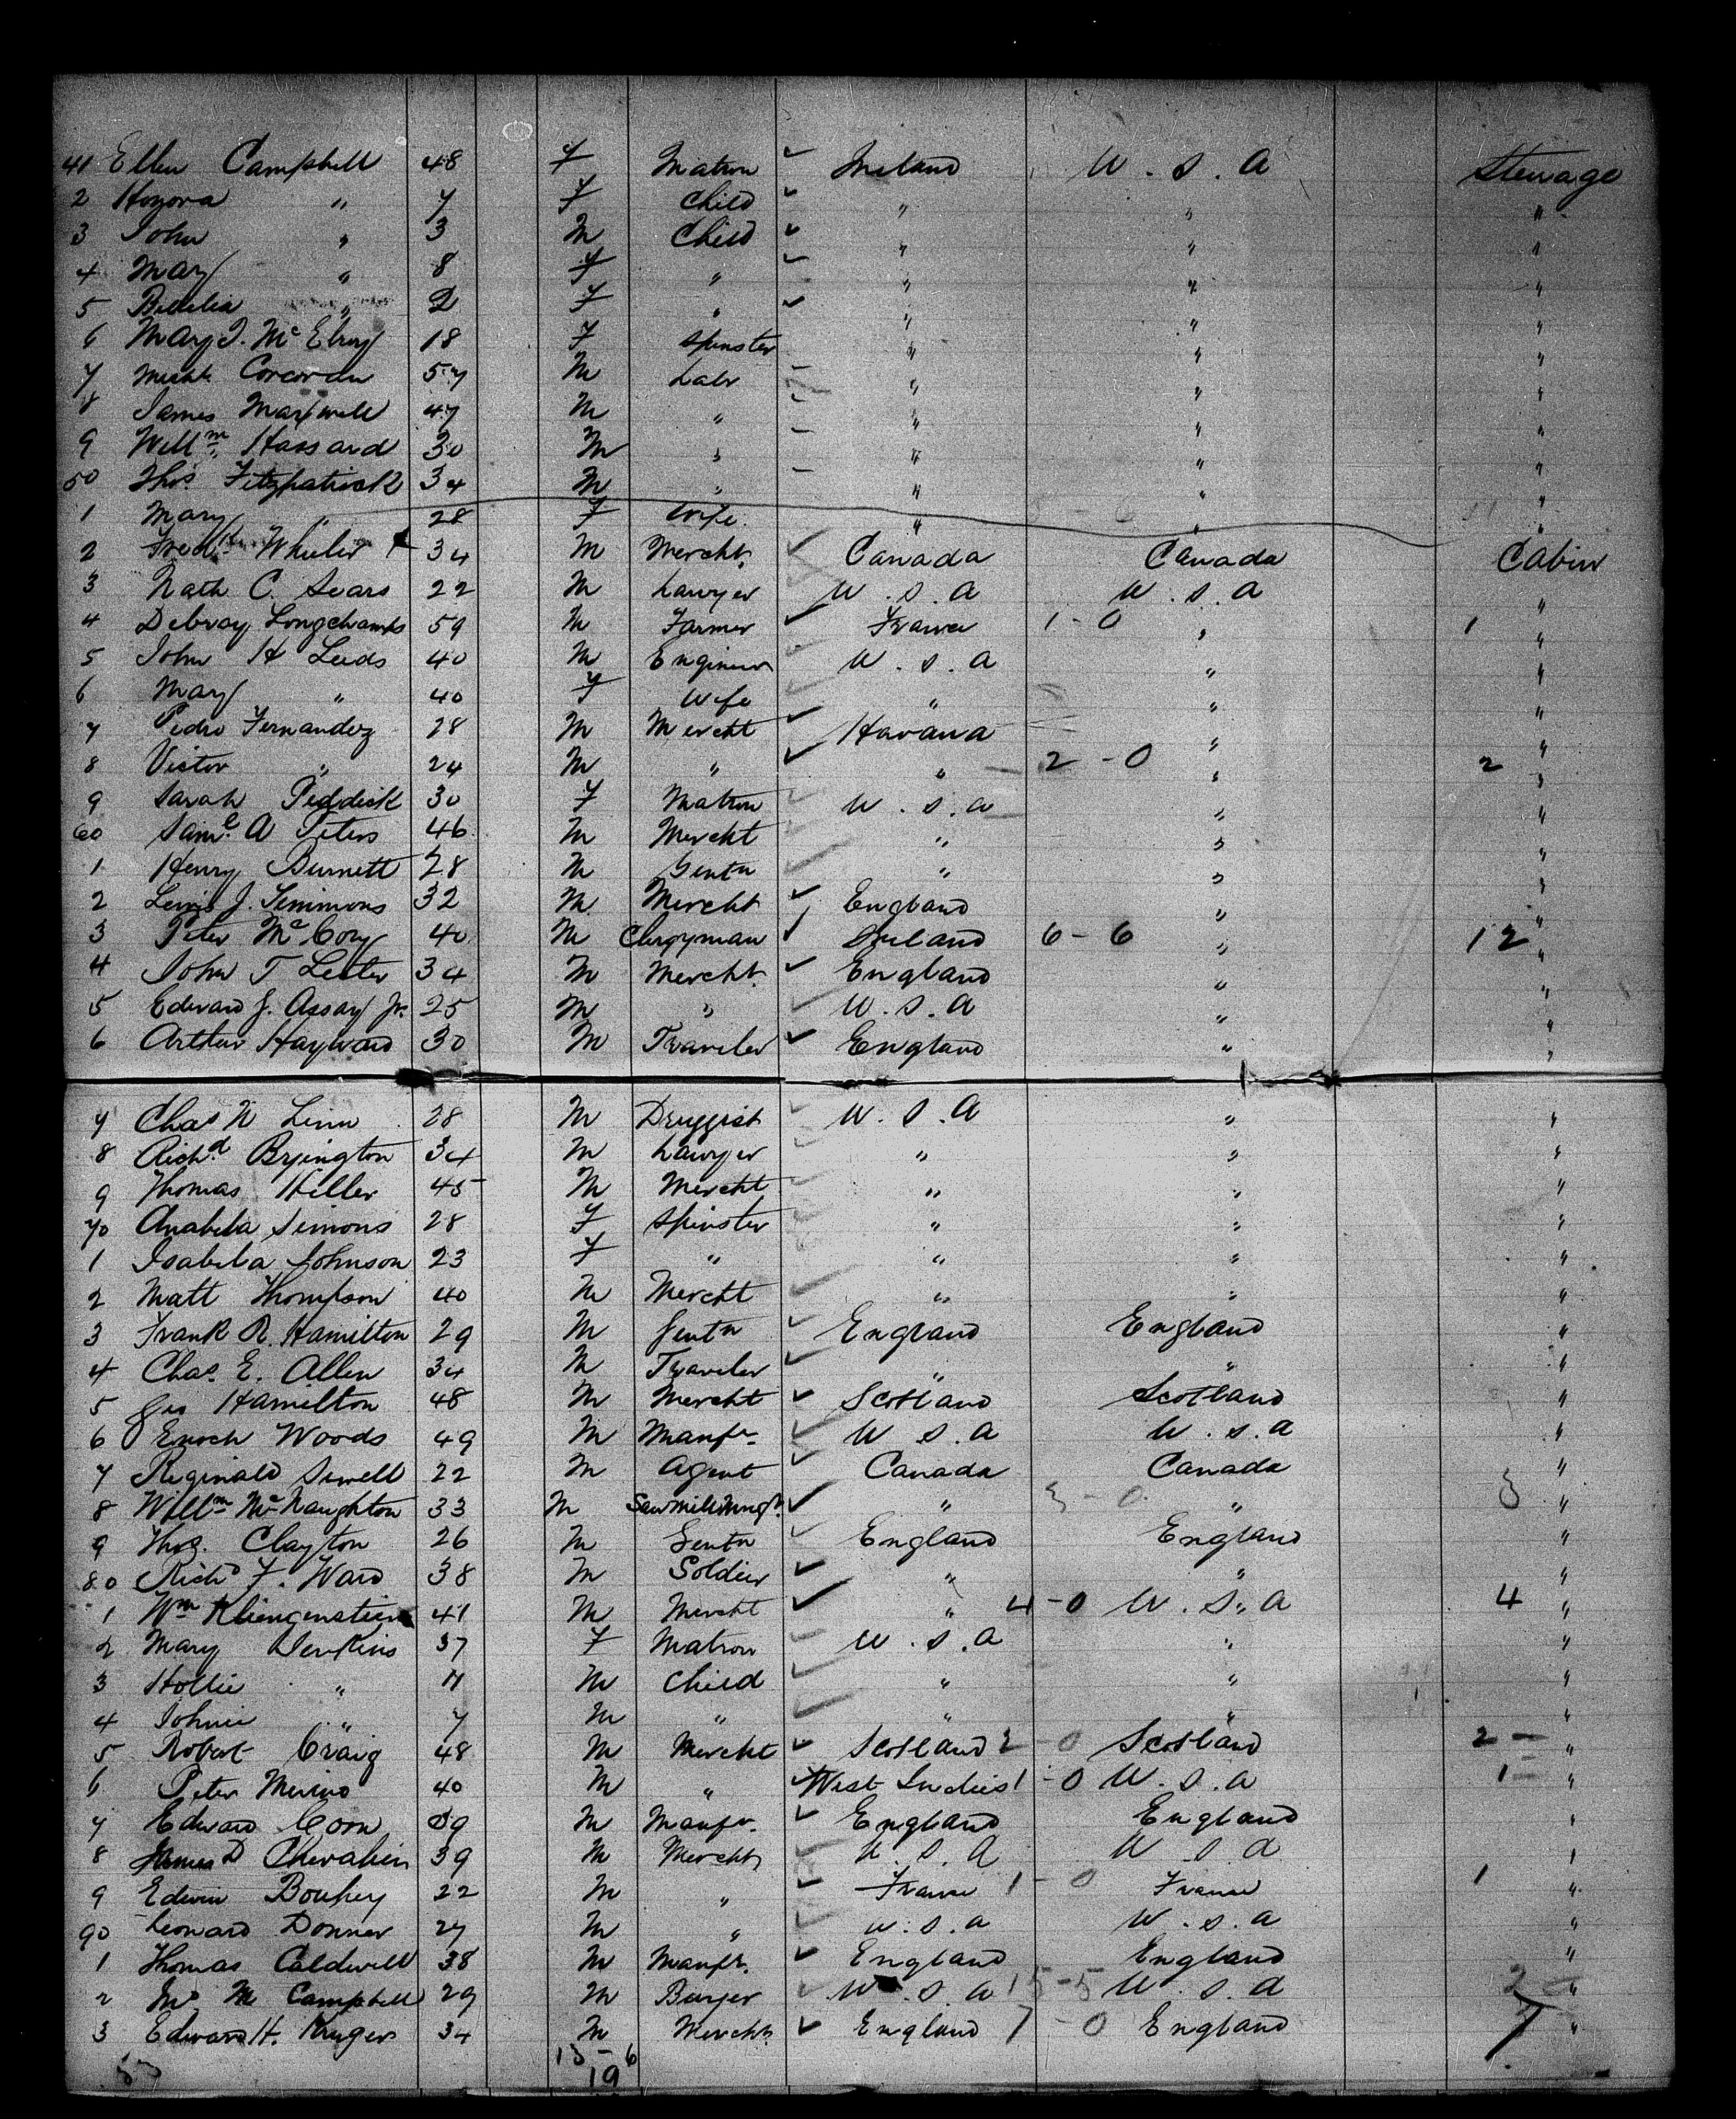 41 Ellen Campbell 48 F Matron Ireland U.S.A Steerage
2 Honora " 7 F Child " " "
3 John " 3 M Child " " "
4 Mary " 8 F " " " "
5 Bedelia " 2 F " " " "
6 Mary J. McElroy 18 F Spinster " " "
7 Corcoran 57 M Labr " " "
8 James Maxwell 47 M " " " "
9 Willm Hassard 30 M " " " "
50 Thos. Fitzpatrick 34 M " " " "
1 Mary " 28 F Wife " " "
2 Fredk Wheeler 34 M Mercht. Canada Canada Cabin
3 Nath C. Sears 22 M Lawyer U.S.A U.S.A "
4 Debray Longchamps 59 M Farmer France 1-0 " 1 "
5 John H Leeds 40 M Engineer U.S.A " "
6 Mary " 40 F Wife " " "
7 Pedro Fernandez 28 M Mercht Havana " "
8 Victor " 24 M " " 2-0 " 2 "
9 Sarah Peddick 30 F Matron U.S.A " "
60 Saml. A Peters 46 M Mercht " " "
1 Henry Burnett 28 M Gentn " " "
2 Lewis J. Timmons 32 M Mercht England " "
3 Peter McCory 40 M Clergyman Ireland 6-6 " 12 "
4 John T Lester 34 M Mercht. England " "
5 Edward J. Assay Jr. 25 M " U.S.A " "
6 Arthur Hayward 30 M Traveler England " "
7 Chas N Linn 28 M Druggist U.S.A " "
8 Richd Bryington 34 M Lawyer " " "
9 Thomas Hiller 45 M Mercht " " "
70 Anabela Simons 28 F Spinster " " "
1 Isabela Johnson 23 F " " " "
2 Matt Thompson 40 M Mercht " " "
3 Frank R. Hamilton 29 M Gentn England England "
4 Chas. E. Allen 34 M Traveler " " "
5 Geo Hamilton 48 M Mercht Scotland Scotland "
6 Enoch Woods 49 M Manfr. U.S.A U.S.A "
7 Reginald Sewell 22 M Agent Canada Canada "
8 Willm McNaughton 33 M Sawmill Mngr. " 3-0 " 3 "
9 Thos. Clayton 26 M Gentn England England "
80 Richd F. Ward 38 M Soldier " " "
1 Wm Kliengenstien 41 M Mercht " 4-0 U.S.A 4 "
2 Mary Jenkins 37 F Matron U.S.A " "
3 Hollie " 11 M Child " " "
4 Johnie " 7 M " " " "
5 Robert Craig 48 M Mercht Scotland 2-0 Scotland 2- "
6 Peter Merino 40 M " West Indies 1-0 U.S.A 1 "
7 Edward Coon 39 M Manfr. England England "
8 James D Chevalier 39 M Mercht U.S.A U.S.A "
9 Edwin Bouhey 22 M " France 1-0 France 1 "
90 Leonard Donner 27 M " U.S.A U.S.A "
1 Thomas Caldwell 38 M Manfr. England England "
2 Jno. M Campbell 29 M Buyer U.S.A 15-5 U.S.A "
3 Edward H. Krugers 34 M Mercht. England 7-0 England 7 "
53 13-6
19